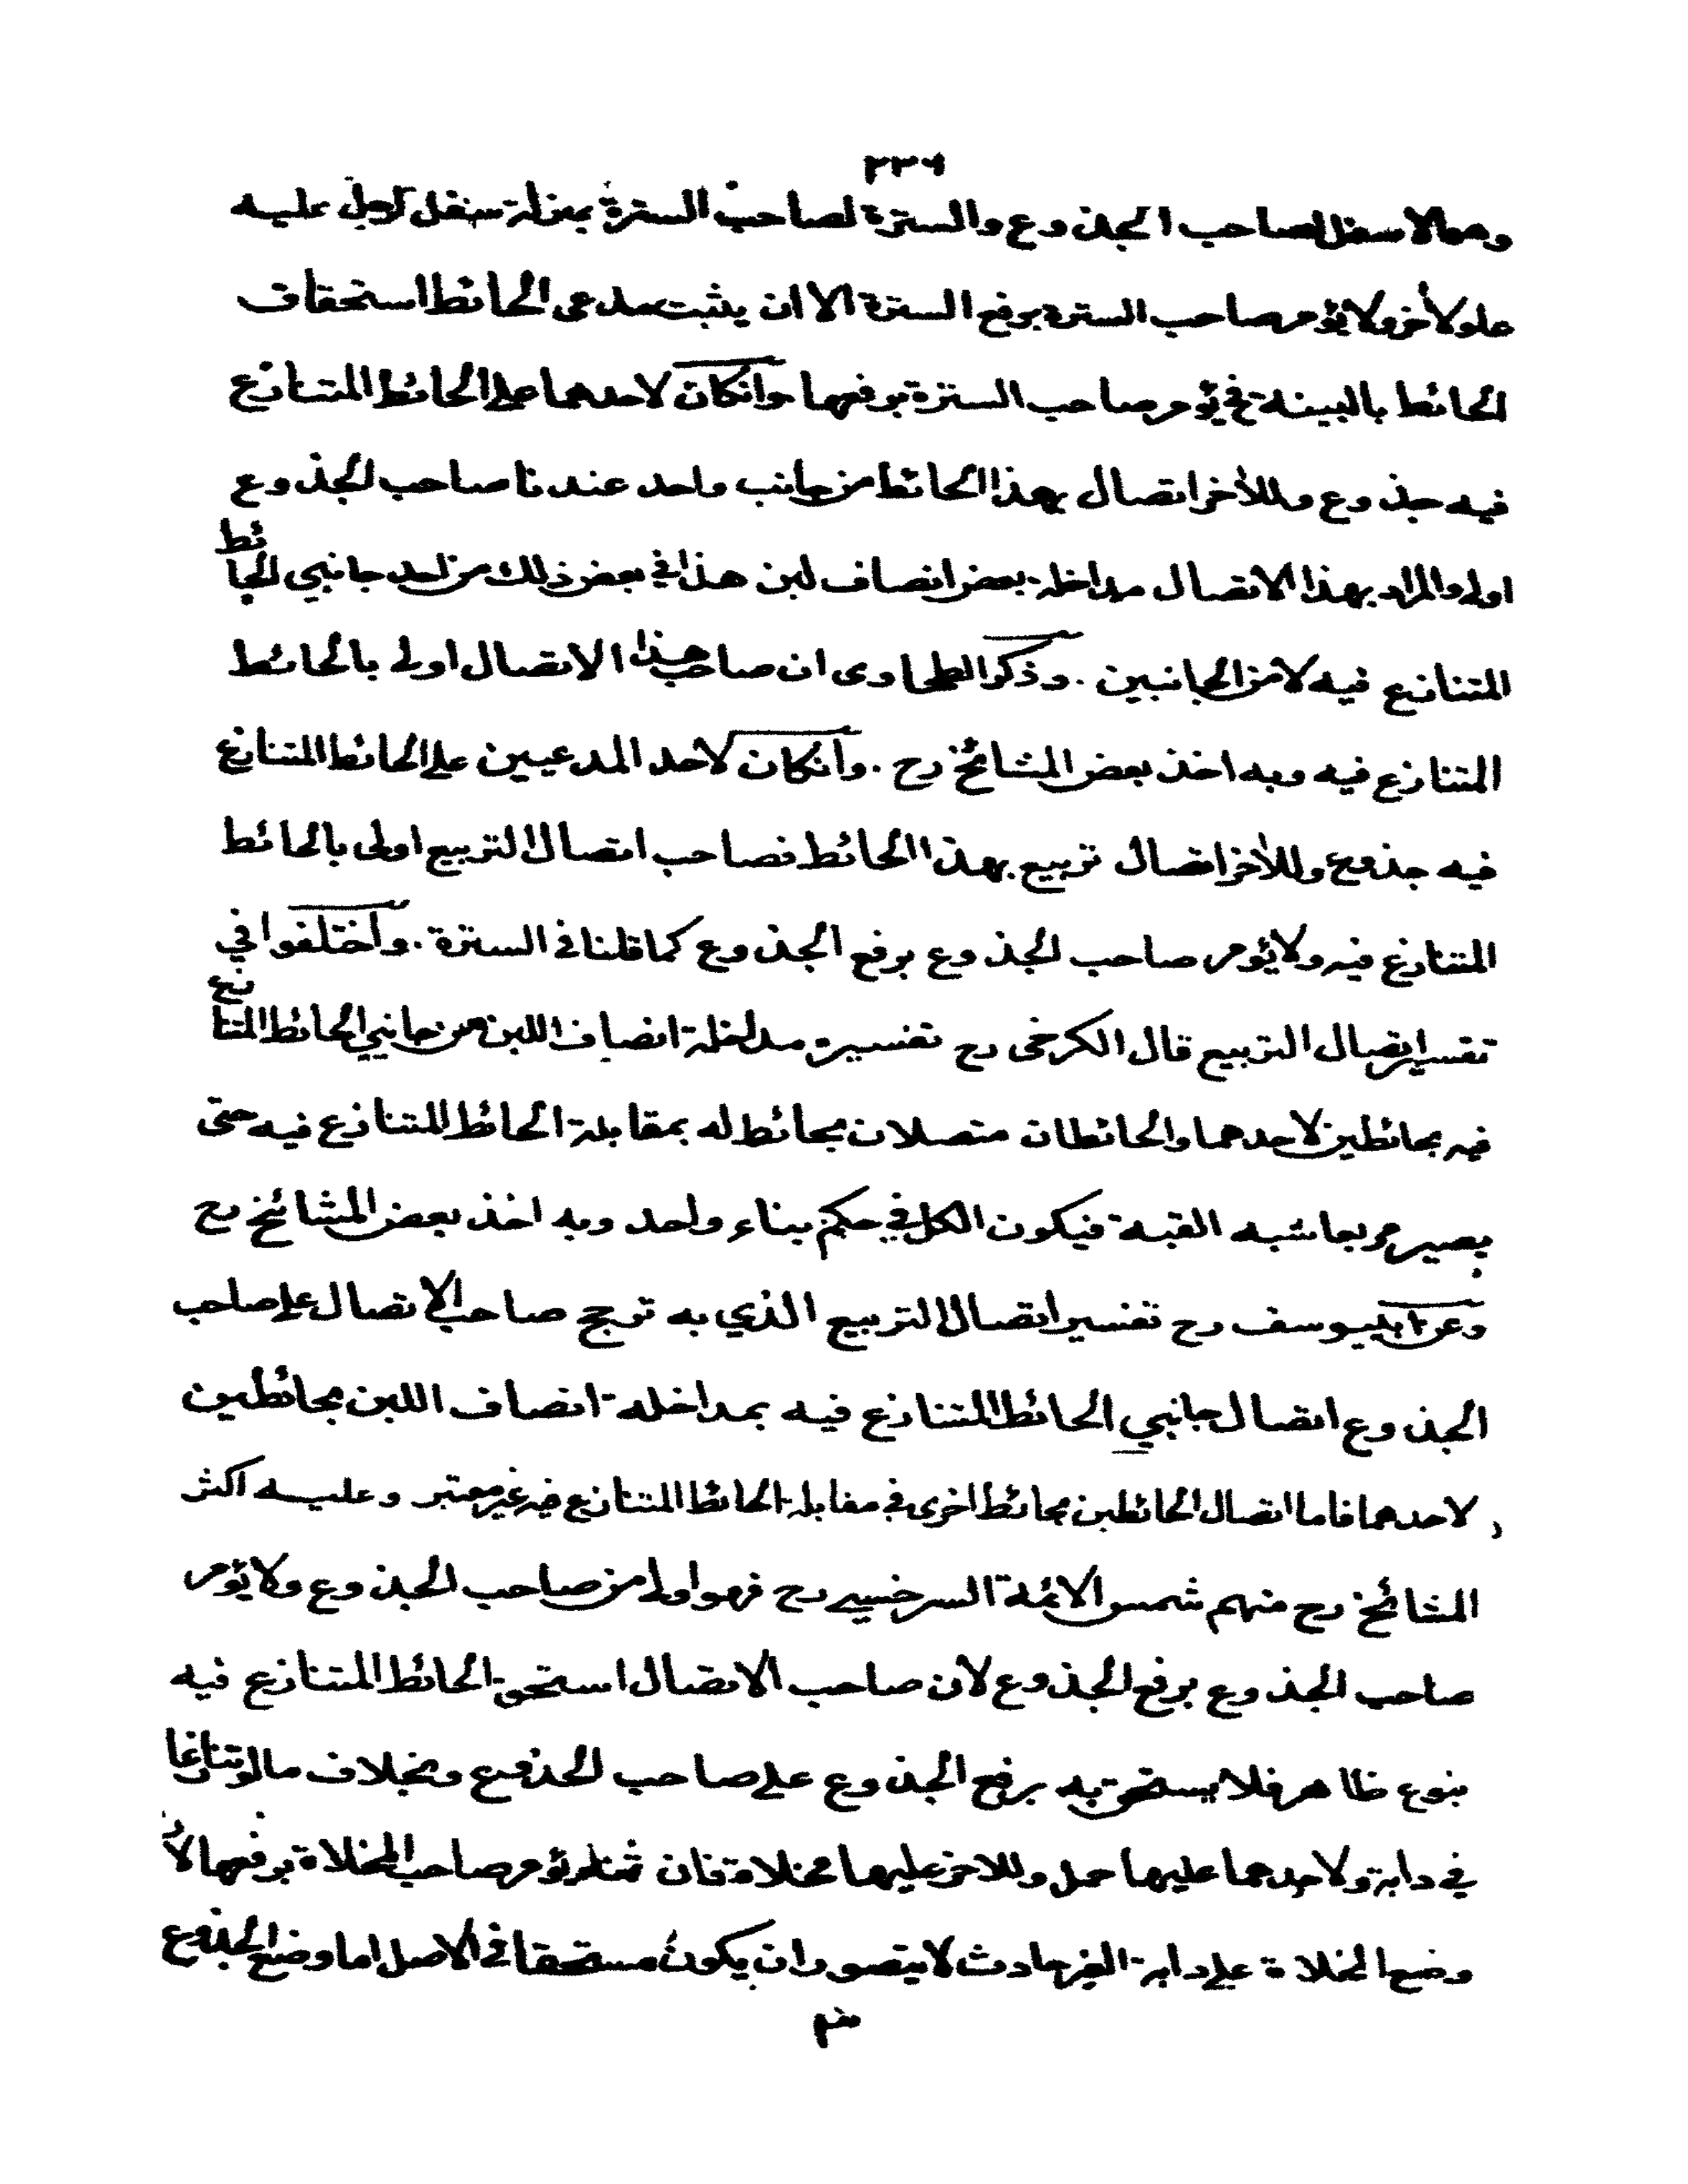 ٢٣٦
وهما لاسفل لصاحب الجذوع والسترة لصاحب السترة بمنزلة سفل لرجل عليه
علو لاخر ولا يؤمر صاحب السترة برفع السترة الا ان يثبت مدعى الحائط استحقاق
الحائط بالبينة فح يؤمر صاحب السترة برفعها وانكان لاحدهما على الحائط المتنازع
فيه جذوع وللأخر اتصال بهذا الحائط من جانب واحد عندنا صاحب الجذوع
اولى والمراد بهذا الاتصال مداخلة بعض انصاف لبن هذا في بعض ذلك من احد جانبي الحائط
المتنازع فيه لا من الجانبين . وذكر الطحاوى ان صاحب هذا الاتصال اولى بالحائط
المتنازع فيه وبه اخذ بعض المشائخ رح . وانكان لاحد المدعيين على الحائط المتنازع
فيه جذوع وللأخر اتصال تربيع بهذا الحائط فصاحب اتصال التربيع اولى بالحائط
المتنازع فيه ولا يؤمر صاحب الجذوع برفع الجذوع كما قلنا فى السترة . واختلفوا في
تفسير اتصال التربيع قال الكرخى رح تفسيره مداخلة انصاف اللبن من جانبي الحائط المتنازع
فيه بحائطين لاحدهما والحائطان متصلان بحائط له بمقابلة الحائط المتنازع فيه حتى
يصير مربعا شبه القبة فيكون الكل في حكم بناء واحد وبه اخذ بعض المشائخ رح
وعن ابي يوسف رح تفسير اتصال التربيع الذي به ترجح صاحب الاتصال على صاحب
الجذوع اتصال جانبي الحائط المتنازع فيه بمداخلة انصاف اللبن بحائطين
لاحدهما فاما اتصال الحائطين بحائط اخرى في مقابلة الحائط المتنازع فيه غير معتبر وعليه اكثر
المشائخ رح منهم شمس الائمة السرخسي رح فهو اولى من صاحب الجذوع ولا يؤمر
صاحب الجذوع برفع الجذوع لان صاحب الاتصال استحق الحائط المتنازع فيه
بنوع ظاهر فلا يستحق به برفع الجذوع على صاحب الجذوع وبخلاف ما لو تنازعا
في دابة ولاحدهما عليها حمل وللاخر عليها مخلاة فان ثمة يؤمر صاحب المخلاة برفعها لان
وضع المخلاة على دابة الغير حادث لا يتصور ان يكون مستحقا فى الاصل اما وضع الجذوع